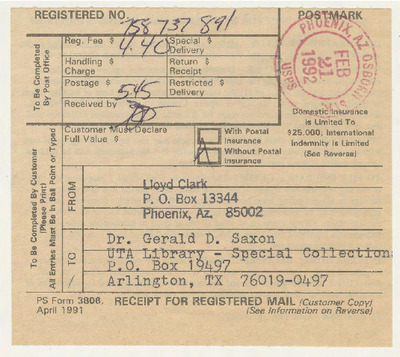 REGISTERED NO. 758 737 891
POSTMARK
Reg. Fee $ 4.40
Special $ Delivery
Handling $ Charge
Return $ Receipt
Postage $ 5.45
Restricted $ Delivery
Received by
To Be Completed By Post Office
PHOENIX, AZ OSBORN STA.
FEB 21 1992
USPS
Domestic Insurance
Is Limited To
$25,000; International
Indemnity is Limited
(See Reverse)
Customer Must Declare
Full Value $
With Postal
Insurance
Without Postal
Insurance
To Be Completed By Customer
(Please Print)
All Entries Must Be in Ball Point or Typed
FROM
Lloyd Clark
P. O. Box 13344
Phoenix, Az. 85002
TO
Dr. Gerald D. Saxon
UTA Library - Special Collections
P.O. Box 19497
Arlington, TX 76019-0497
PS Form 3806, RECEIPT FOR REGISTERED MAIL (Customer Copy)
April 1991 (See Information on Reverse)